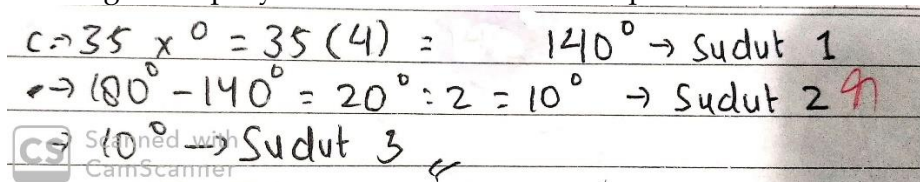 c.→ 35 x° = 35 (4) = 140° → Sudut 1
•→ 180° - 140° = 20° : 2 = 10° → Sudut 2
→ 10° → Sudut 3
CS Scanned with
CamScanner